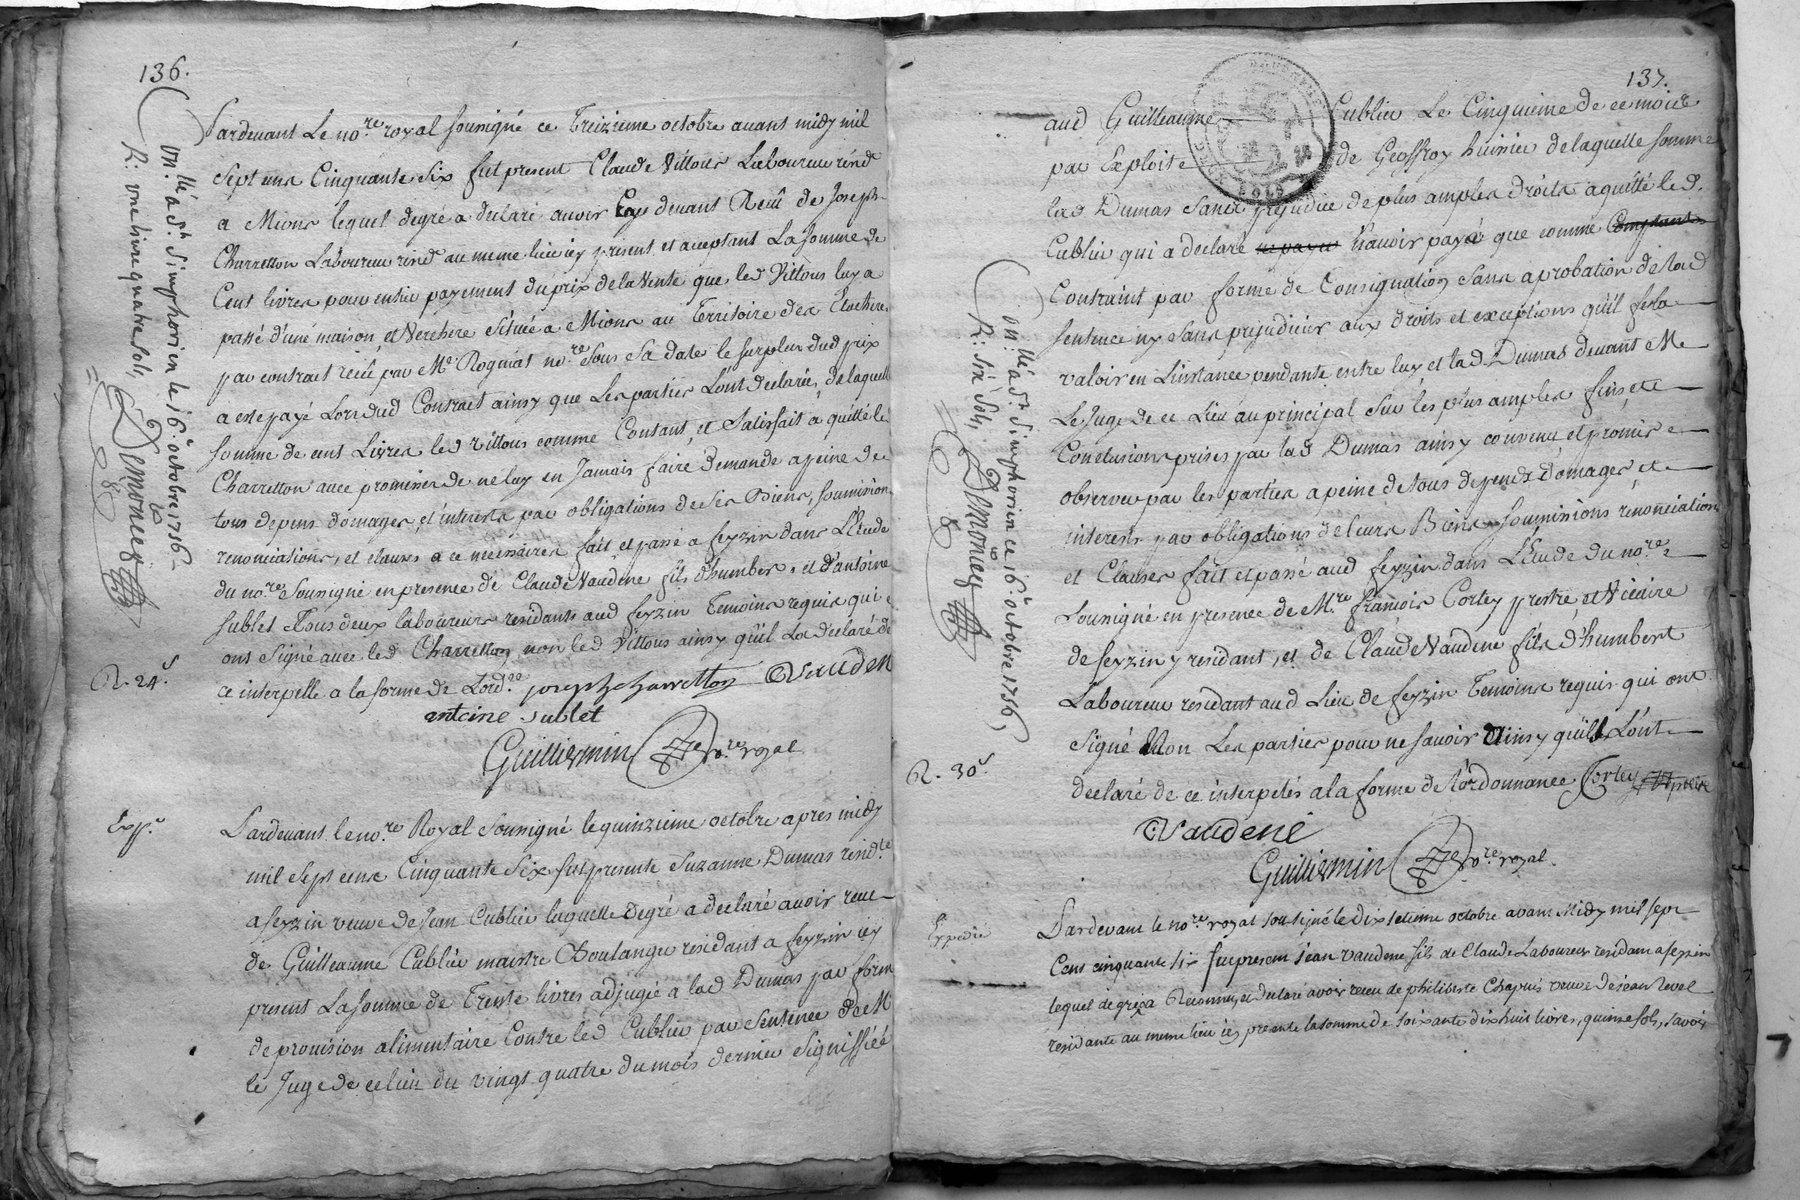 136.
Pardevant Le no.re royal soussigné ce Treizieme octobre avant midy mil
sept cens Cinquante six fut present Claude Vittous Laboureur résid.t
a Mions lequel degré a declaré avoir cy devant Receü de Joseph
Charretton Laboureur resid.t au meme lieu icy present et aceptant La somme de
Cent livres pour entier payement du prix de la Vente que led Vittous luy a
passé d'une maison, et Verchere Située a Mions au Territoire des
par contrat receü par Me. Rogniat no.re sous Sa date le surplus dud prix
a été payé Lors dud Contract ainsy que Les parties L'ont declaré, de laquelle
somme de cent Livres led Vittous comme Contant, et Satisfait a quitté le
Charretton avec promesses de ne luy en Jamais faire demande a peine de
tous depens domages, et interests par obligations de ses Biens, soumissions
renonciations, et clauses a ce necessaires fait et passé a feyzin dans L'Etude
du no.re Soussigné en presence de Claude Vaudene fils d'humbert, et d'antoine
sublet Tous deux laboureurs residants aud feyzin Temoins requis qui
ont Signé avec led Charretton non led Vittous ainsy qu'il La declaré de
ce interpellé a la forme de L'ord.ce joseph charretton Vaudene
antoine sublet
Guilliermin no.re royal
vn.llé a St. Simphorien le 16.e octobre 1756
R: vne livre quatre sols,
Demoncez
R. 24.s
Exp.é
Pardevant le no.re Royal Soussigné le quinzieme octobre apres midy
mil sept cens Cinquante Six fut presente Suzanne Dumas resid.te
a feyzin veuve de Jean Cublier laquelle degré a declaré avoir receu
de Guilleaume Cublier maistre Boulanger residant a feyzin icy
present La somme de Trente livres adjugée a lad Dumas par forme
de provision alimentaire Contre led Cublier par Sentence de M
le Juge de ce lieu du vingt quatre du mois dernier Signiffiée
137.
aud Guilleaume Cublier Le Cinquieme de ce mois
par Exploit de Geoffroy huissier de laquelle somme
lad Dumas Sans prejudice de plus amples droits a quitté led.
Cublier qui a declaré n'avoir payé que comme
Contraint par forme de Consignation Sans aprobation de lad
sentence ny sans prejudicier aux droits et exceptions qu'il fera
valoir en L'instance pendante entre luy et lad Dumas devant Me
Le Juge de ce Lieu au principal Sur les plus amples fins, et
Conclusions prises par lad Dumas ainsy convenu et promis
observer par les parties a peine de tous depends domages et
interests par obligations de leurs Biens soumissions renonciations
et Clauses fait et passé aud feyzin dans L'Etude du no.re
Soussigné en presence de M.re françois Cortey prestre, et Vicaire
de feyzin y residant, et de Claude Vaudene fils d'humbert
Laboureur residant aud Lieu de feyzin Temoins requis qui ont
Signé Non Les parties pour ne savoir Ainsy qu'ils L'ont
declaré de ce interpelés a la forme de L'ordonnance Cortey
Vaudene
Guilliermin no.re royal.
vn.llé a St. Simphorien ce 16.e octobre 1756,
R: six sols,
Demoncez
R. 30.s
Expedié
Pardevant le no.re royal soussigné le Dix septieme octobre avant Midy mil sept
Cens cinquante six fut present Jean Vaudene fils de Claude Laboureur residant a feyzin
lequel de gré a Reconnu, et declaré avoir receu de philiberte Chapuis veuve de Jean Revel
residante au meme lieu icy presente la somme de soixante dix huit livres, quinze sols, savoir